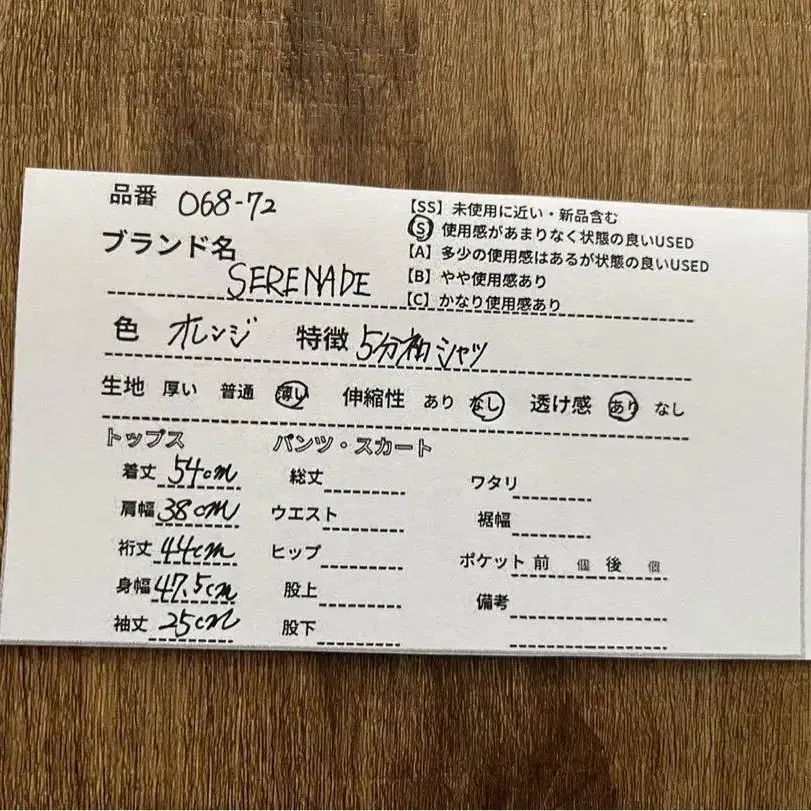 品番 068-72
ブランド名
SERENADE
【SS】未使用に近い・新品含む
【S】使用感があまりなく状態の良いUSED
【A】多少の使用感はあるが状態の良いUSED
【B】やや使用感あり
【C】かなり使用感あり
色 オレンジ 特徴 5分袖シャツ
生地 厚い 普通 薄い 伸縮性 あり なし 透け感 あり なし
トップス パンツ・スカート
着丈 54cm 総丈 ワタリ
肩幅 38cm ウエスト 裾幅
裄丈 44cm ヒップ ポケット 前 個 後 個
身幅 47.5cm 股上 備考
袖丈 25cm 股下